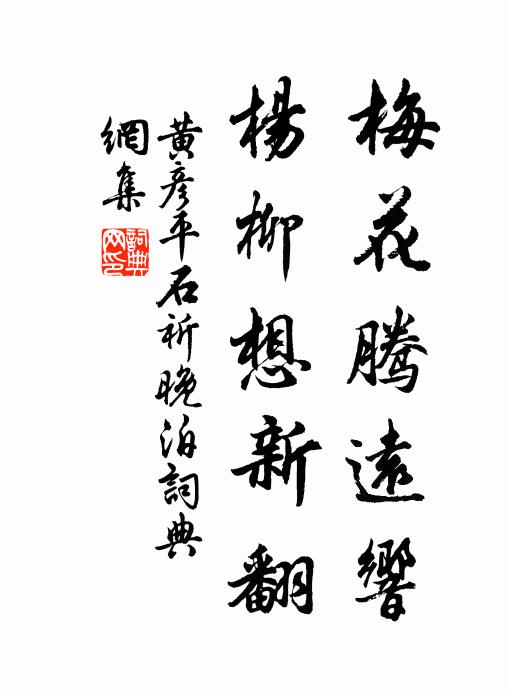 梅花騰遠響
楊柳想新翻
黃彥平石祈晚泊詞典
網集
詞典網印